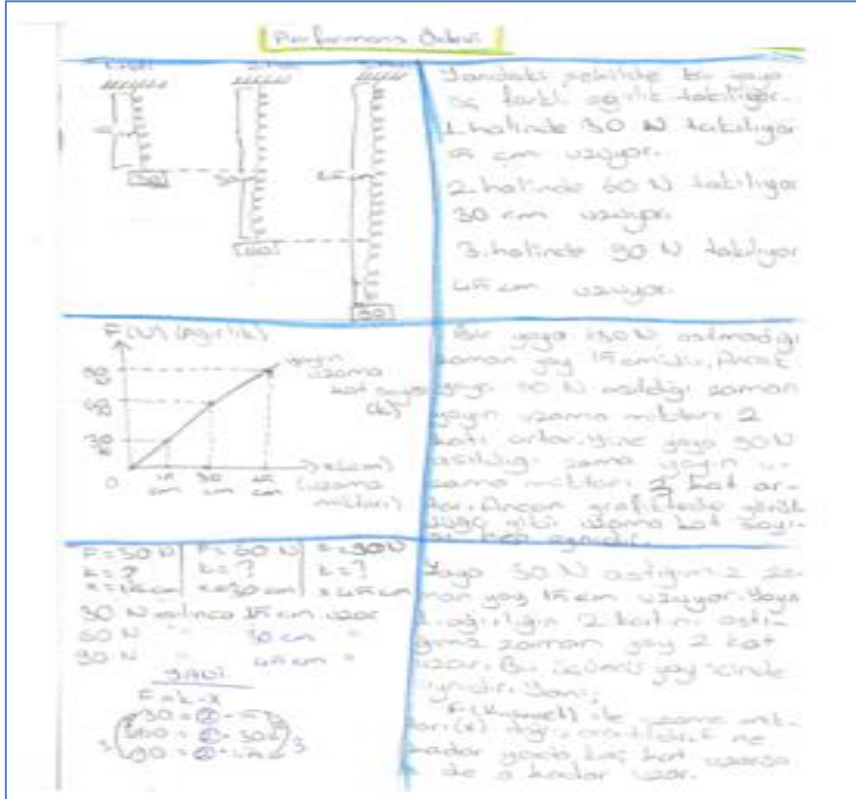 Performans Ödevi
Yandaki şekilde bir yaya
üç farklı ağırlık takılıyor.
1. halinde 30 N takılıyor
15 cm uzuyor.
2. halinde 60 N takılıyor
30 cm uzuyor.
3. halinde 90 N takılıyor
45 cm uzuyor.
30
60
90
F(N) (Ağırlık)
yayın
uzama
kat sayısı
(k)
90
60
30
0
15
cm
30
cm
45
cm
x(cm)
(uzama
miktarı)
Bir yaya 30 N asılmadığı
zaman yay 15 cm'dir. Ancak
yaya 60 N asıldığı zaman
yayın uzama miktarı 2
katı artar. Yine yaya 90 N
asıldığı zama yayın u-
zama miktarı kat ar-
tar. grafikteki
gibi uzama kat sayı-
sı hep aynıdır.
F = 30 N F = 60 N F = 90 N
k = ? k = ? k = ?
x = 15 cm x = 30 cm x = 45 cm
30 N asılınca 15 cm uzar
60 N " 30 cm "
90 N " 45 cm "
YANİ
F = k . x
30 = 2 . 15
60 = 2 . 30
90 = 2 . 45
3
3
Yaya 30 N astığımız za-
man yay 15 cm uzuyor. Yaya
1. ağırlığın 2 katını astı-
ğımız zaman yay 2 kat
uzar. Bu üçüncü yay içinde
aynıdır. Yani;
F (Kuvvet) ile uzama mik-
tarı (x) doğru orantılıdır. F ne
kadar kat
de o kadar uzar.